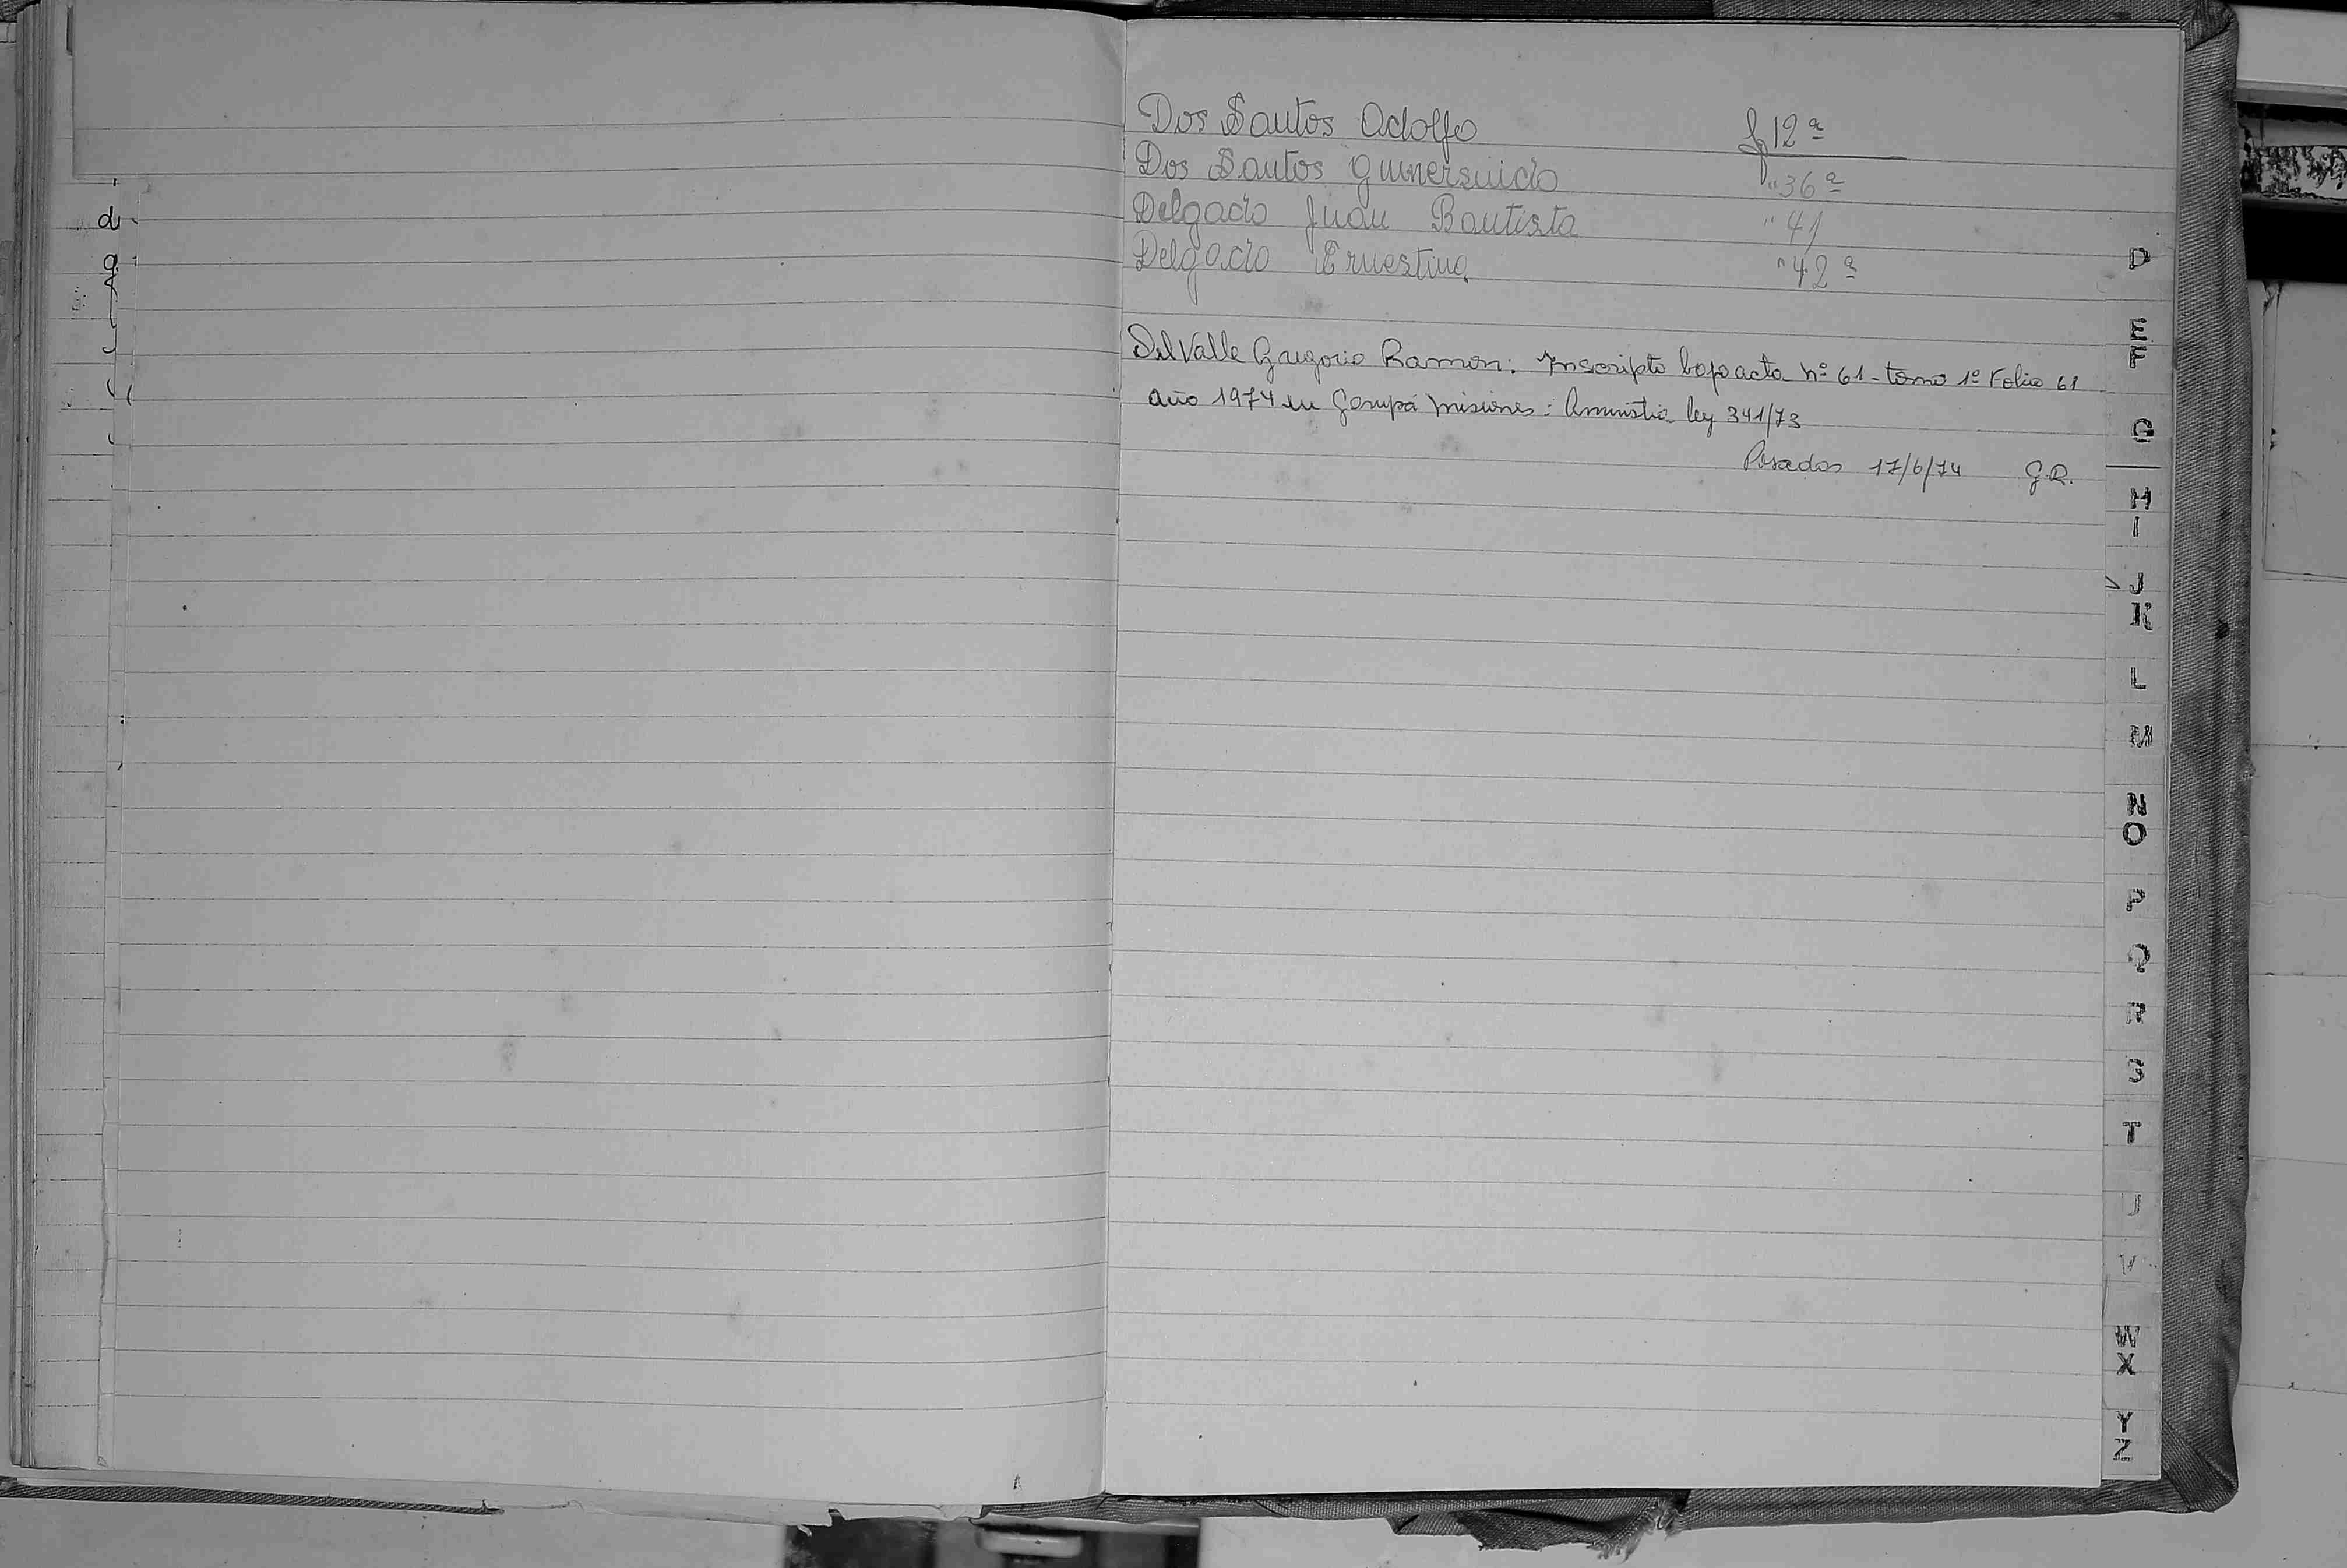 Dos Santos Adolfo f 12ª
Dos Santos Gumersindo " 36ª
Delgado Juan Bautista " 41
Delgado Ernestina " 42ª
Del Valle Gregorio Ramon: Inscripto bajo acta nº 61 - tomo 1º Folio 61
año 1974 en Garupá Misiones: Amnistia ley 341/73
Posadas 17/6/74 G.R.
D
E F
G
H
I
J
K
L
M
N
O
P
Q
R
S
T
U
V
W
X
Y
Z